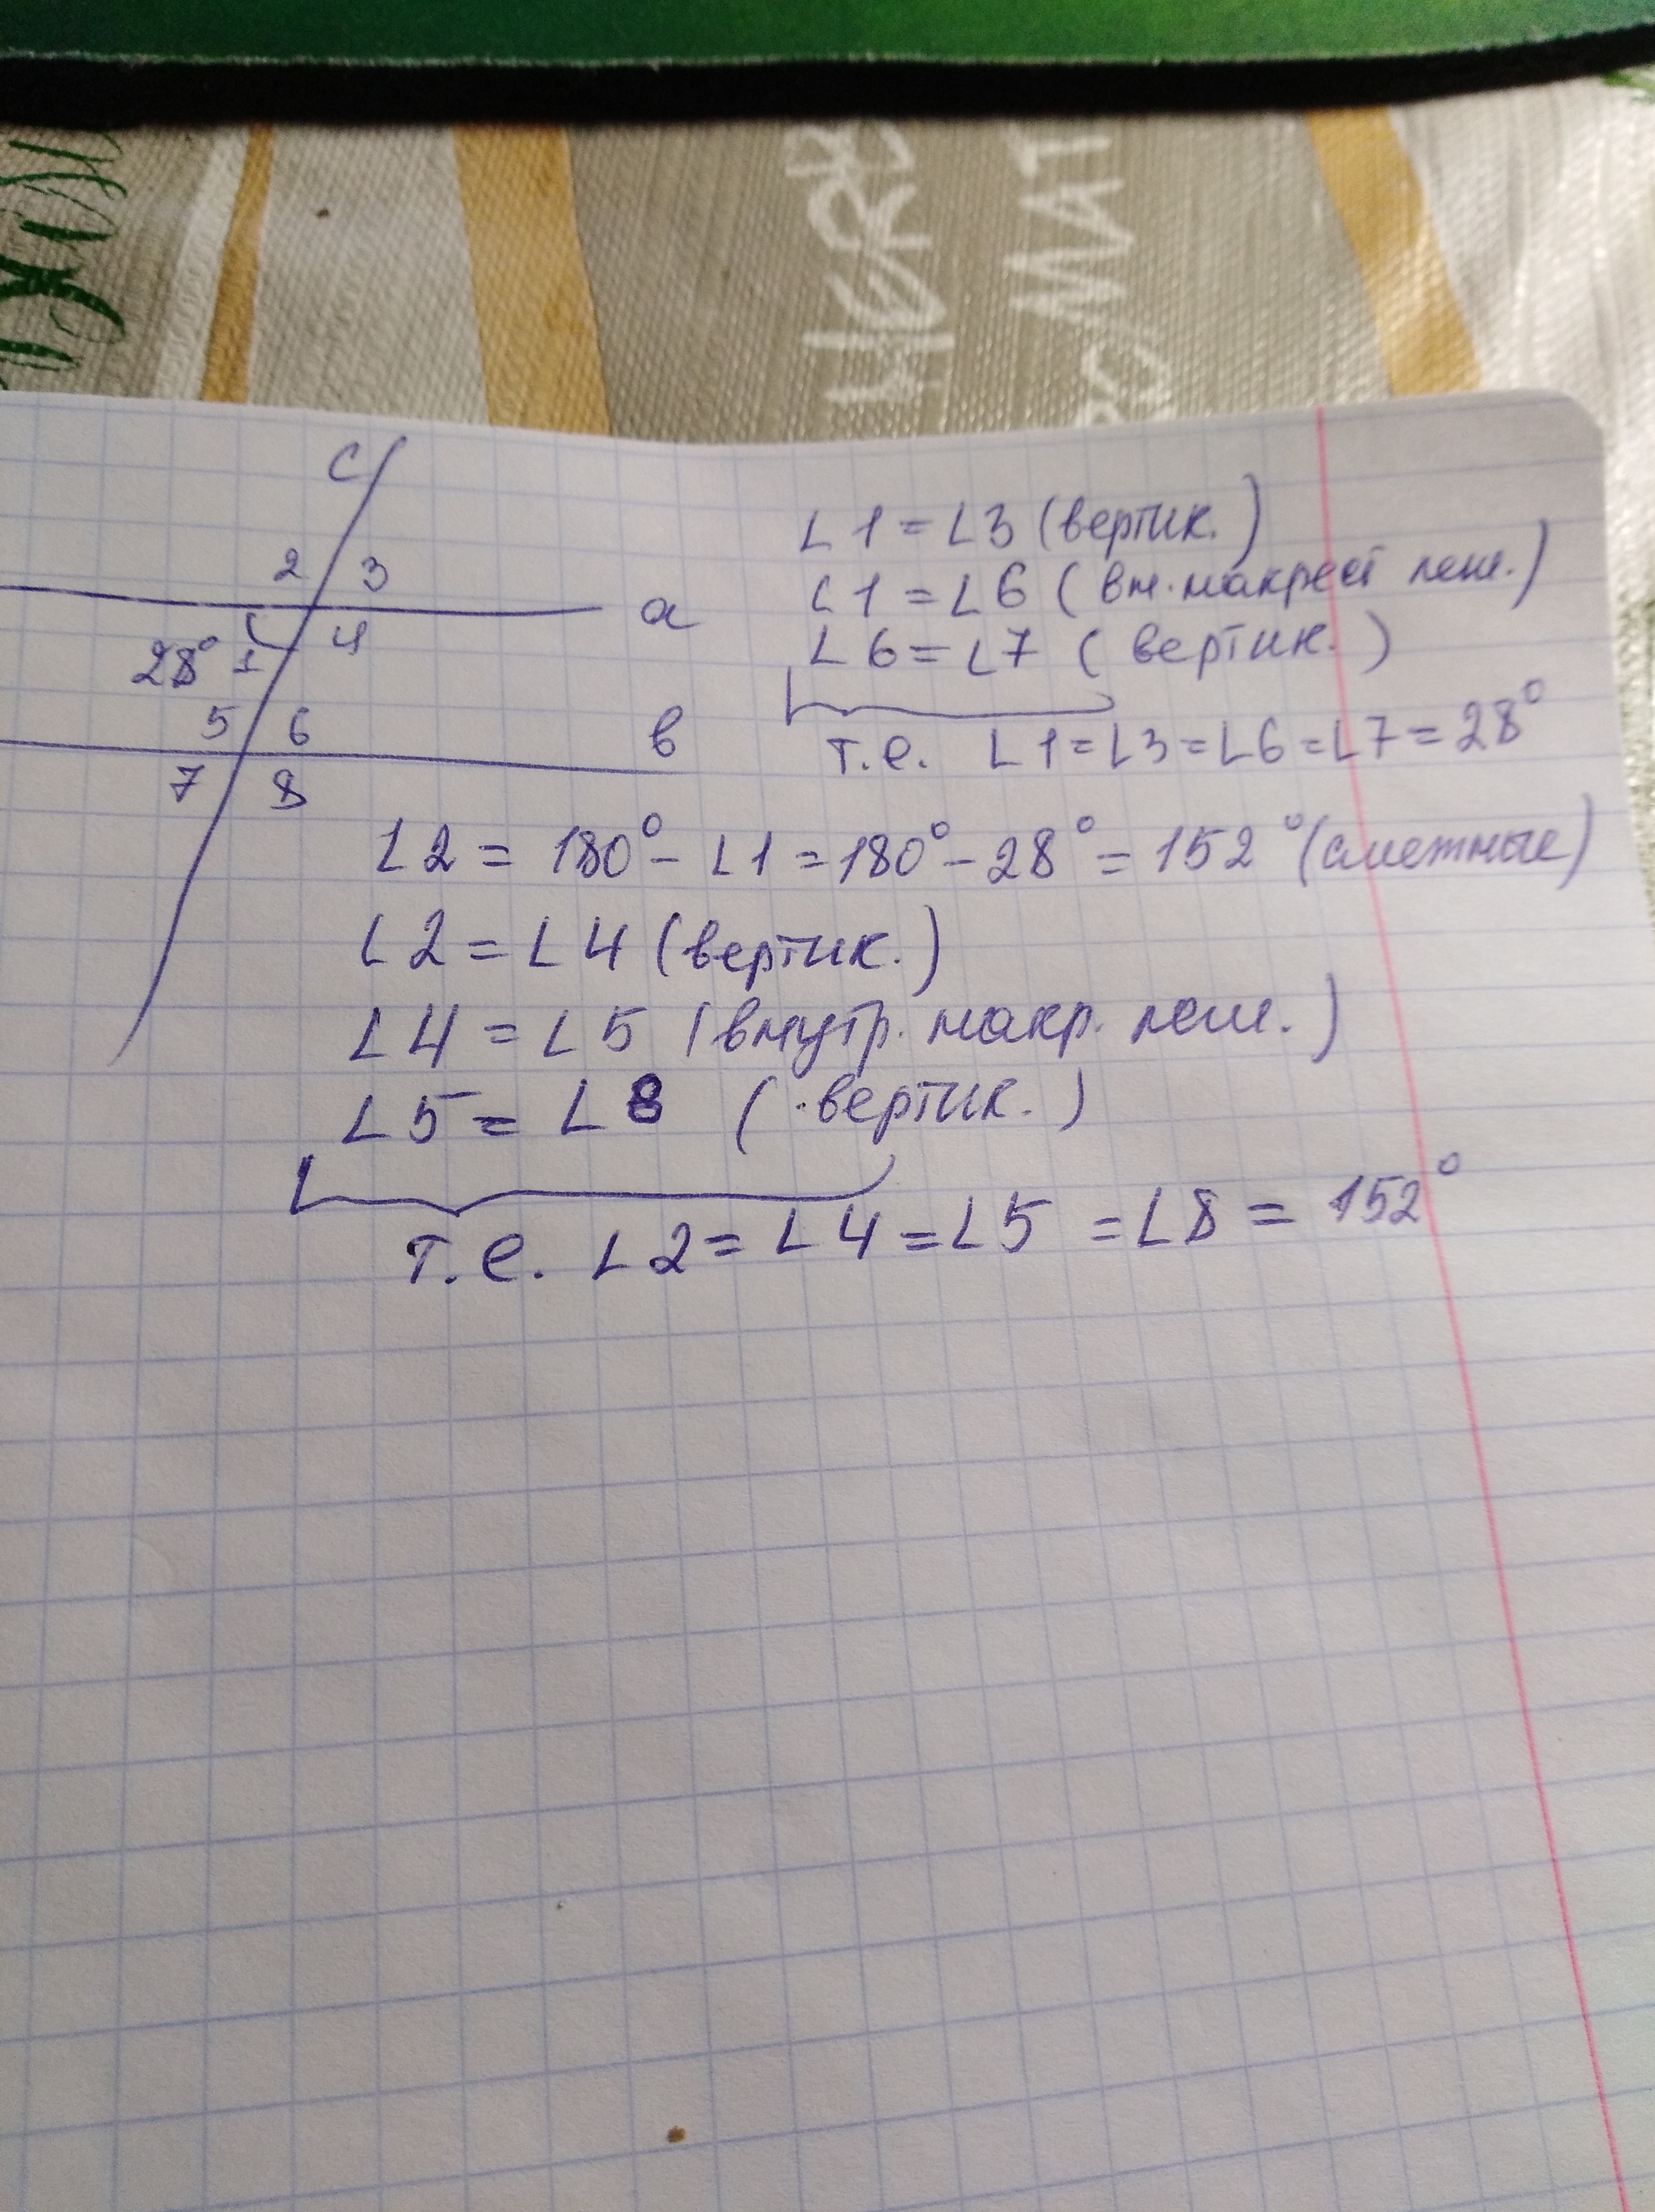 HERB
с
2 3
а
28° 1 4
5 6
в
7 8
∠1 = ∠3 (вертик.)
∠1 = ∠6 (вн. накрест леж.)
∠6 = ∠7 (вертик.)
т.е. ∠1 = ∠3 = ∠6 = ∠7 = 28°
∠2 = 180° - ∠1 = 180° - 28° = 152° (смежные)
∠2 = ∠4 (вертик.)
∠4 = ∠5 (внутр. накр. леж.)
∠5 = ∠8 (вертик.)
т.е. ∠2 = ∠4 = ∠5 = ∠8 = 152°